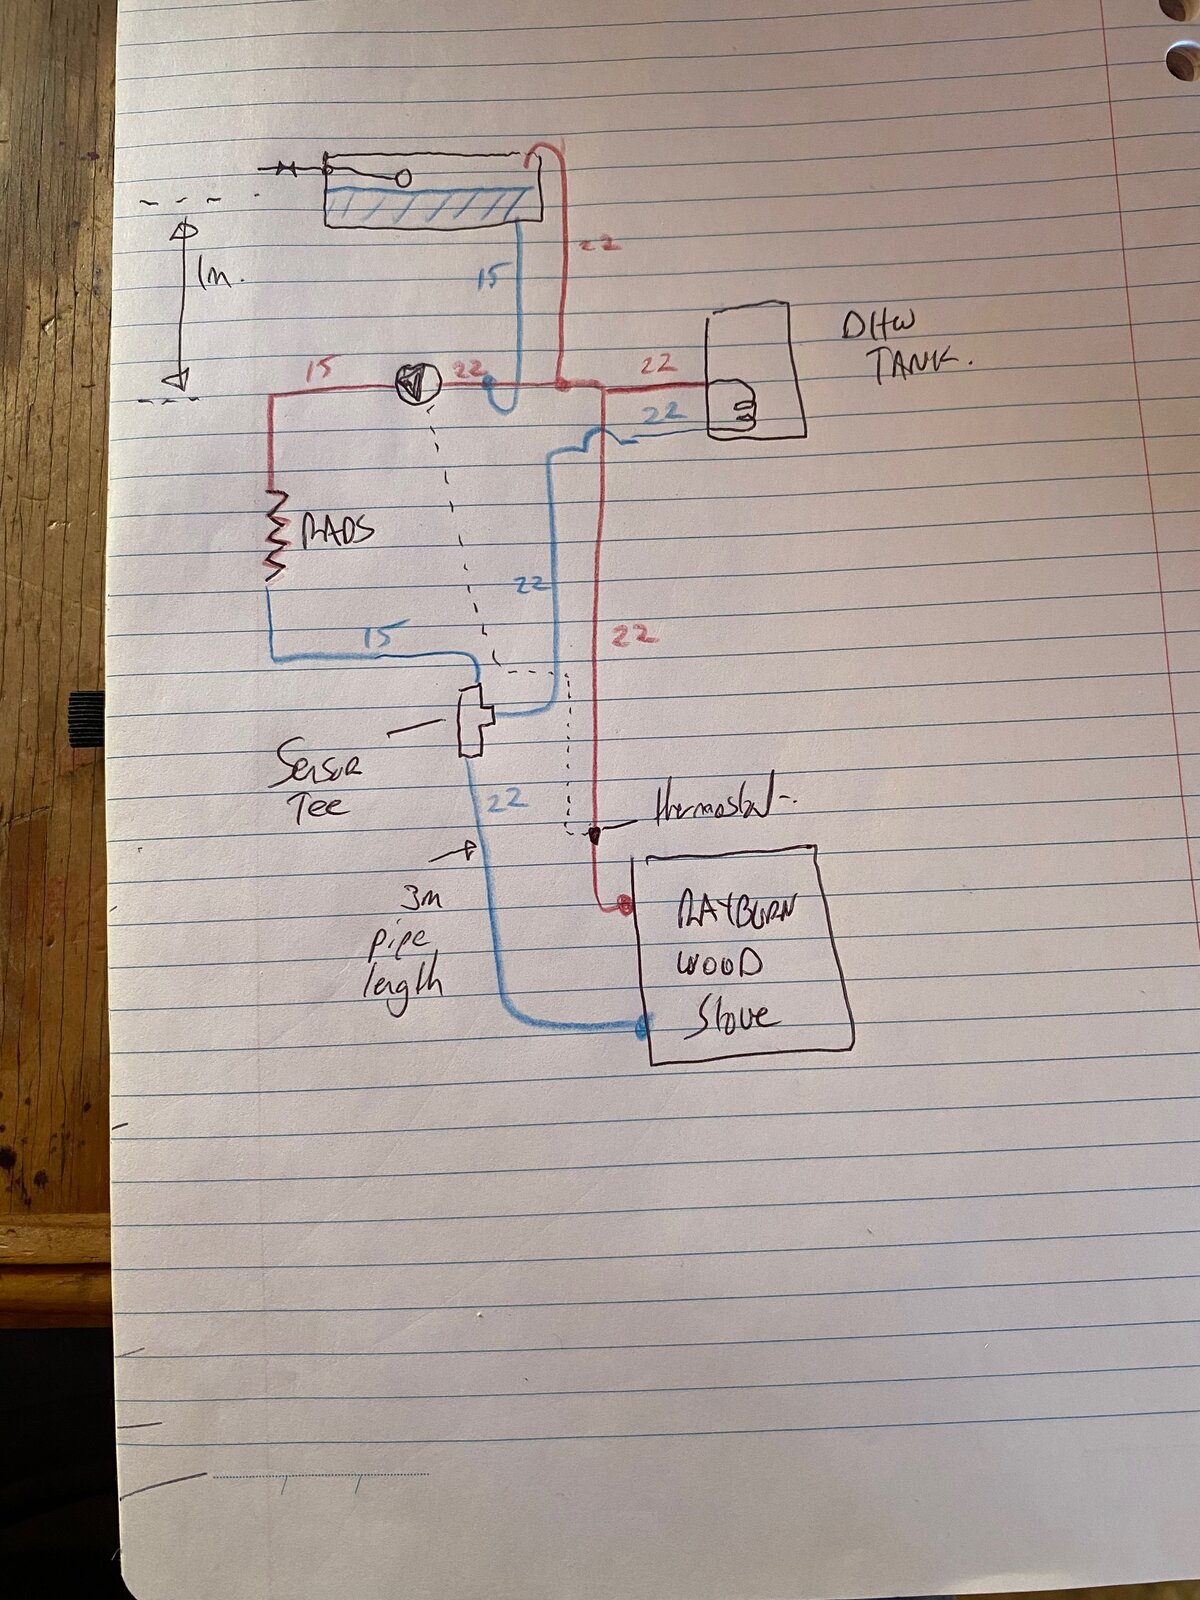 22
1m.
15
DHW
TANK.
15
22
22
22
RADS
22
22
15
Sensor
Tee
22
thermostat.
3m
pipe
length
RAYBURN
WOOD
Stove